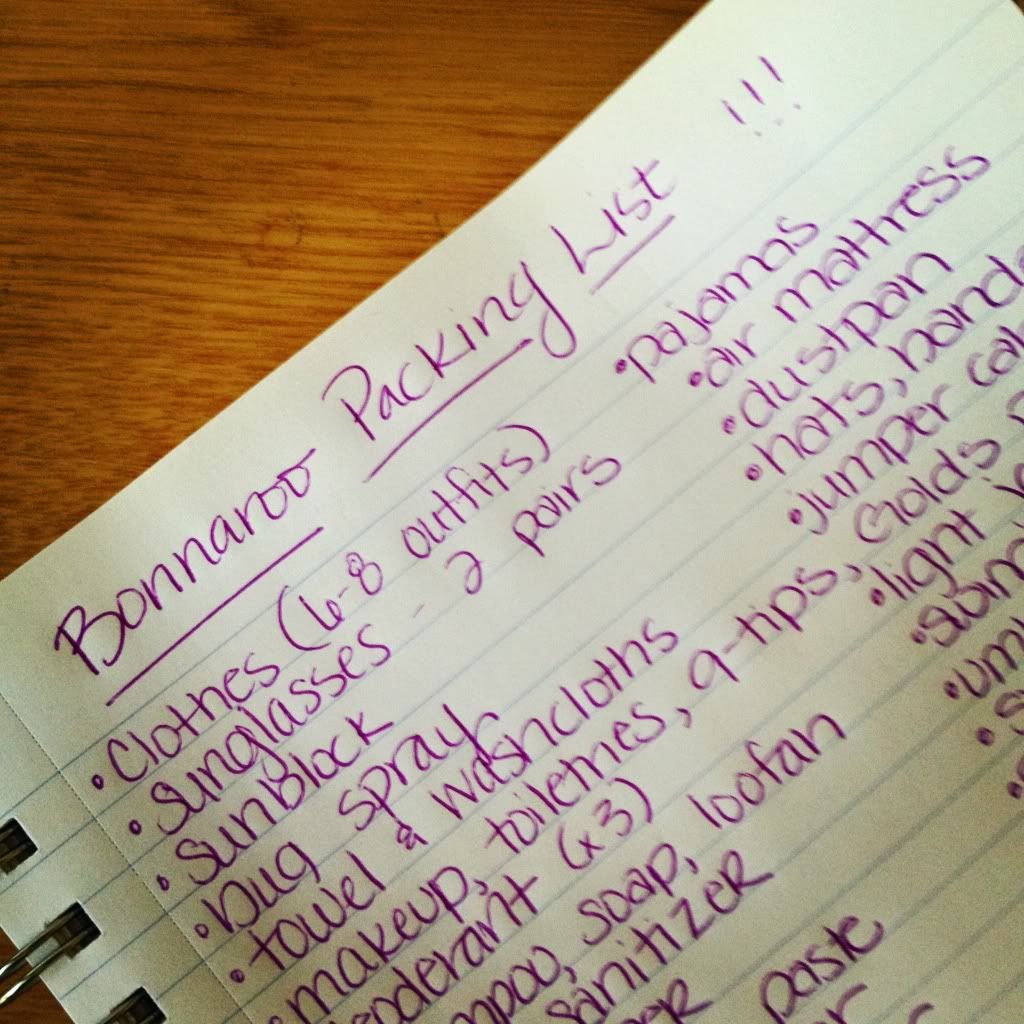 Bonnaroo Packing List !!!
• Clothes (6-8 outfits)
• sunglasses - 2 pairs
• sunBlock
• bug spray
• towel & washcloths
• makeup, toiletries, q-tips,
deoderant (x3)
soap, loofah
sanitizer
paste
• pajamas
• air mattress
• dustpan
• hats,
• jumper
• light